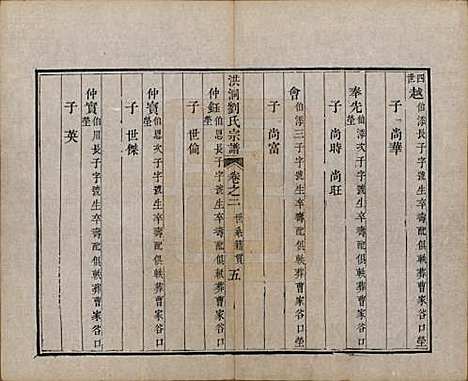 四世
越伯添長子字號生卒壽配俱軼葬曹家谷口塋
子 尚華
奉先伯添次子字號生卒壽配俱軼葬曹家谷口塋
子 尚時 尚旺
會伯添三子字號生卒壽配俱軼葬曹家谷口塋
子 尚富
洪洞劉氏宗譜 卷之二 世系籍貫 五
仲鈺伯恩長子字號生卒壽配俱軼葬曹家谷口塋
子 世倫
仲寶伯恩次子字號生卒壽配俱軼葬曹家谷口塋
子 世傑
仲實伯川長子字號生卒壽配俱軼葬曹家谷口塋
子 英